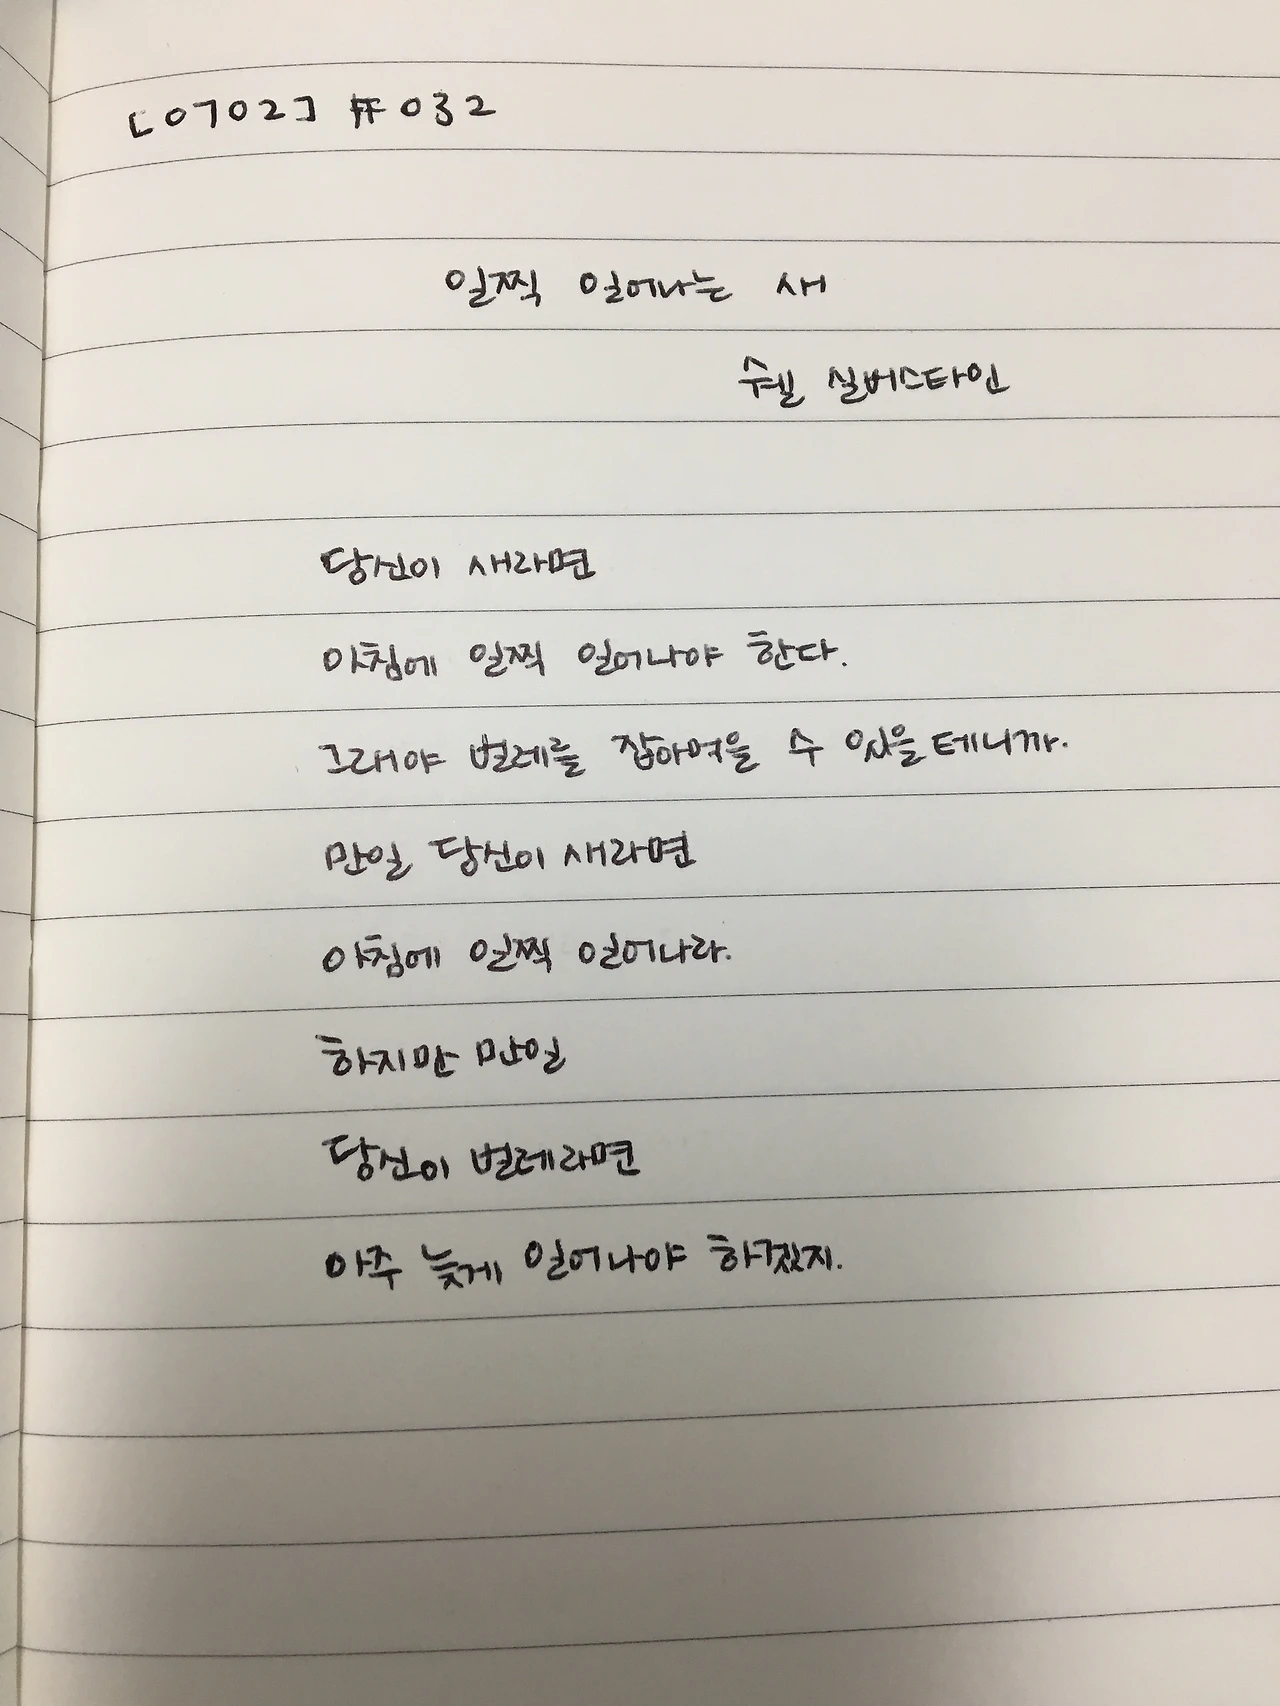 [0702] #032
일찍 일어나는 새
쉘 실버스타인
당신이 새라면
아침에 일찍 일어나야 한다.
그래야 벌레를 잡아먹을 수 있을테니까.
만일 당신이 새라면
아침에 일찍 일어나라.
하지만 만일
당신이 벌레라면
아주 늦게 일어나야 하겠지.